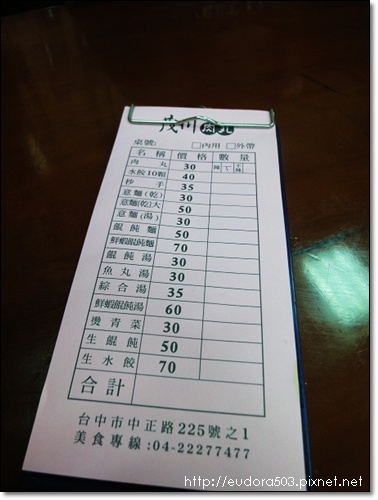 茂川肉丸
桌號: □內用 □外帶
名稱 價格 數量
肉丸 30 辣 一丁 不辣
水餃10顆 40
抄手 35
意麵(乾) 30
意麵(乾)大 50
意麵(湯) 30
餛飩麵 50
鮮蝦餛飩麵 70
餛飩湯 30
魚丸湯 30
綜合湯 35
鮮蝦餛飩湯 60
燙青菜 30
生餛飩 50
生水餃 70
合計
台中市中正路225號之1
美食專線:04-22277477
http://eudora503.pixnet.net/